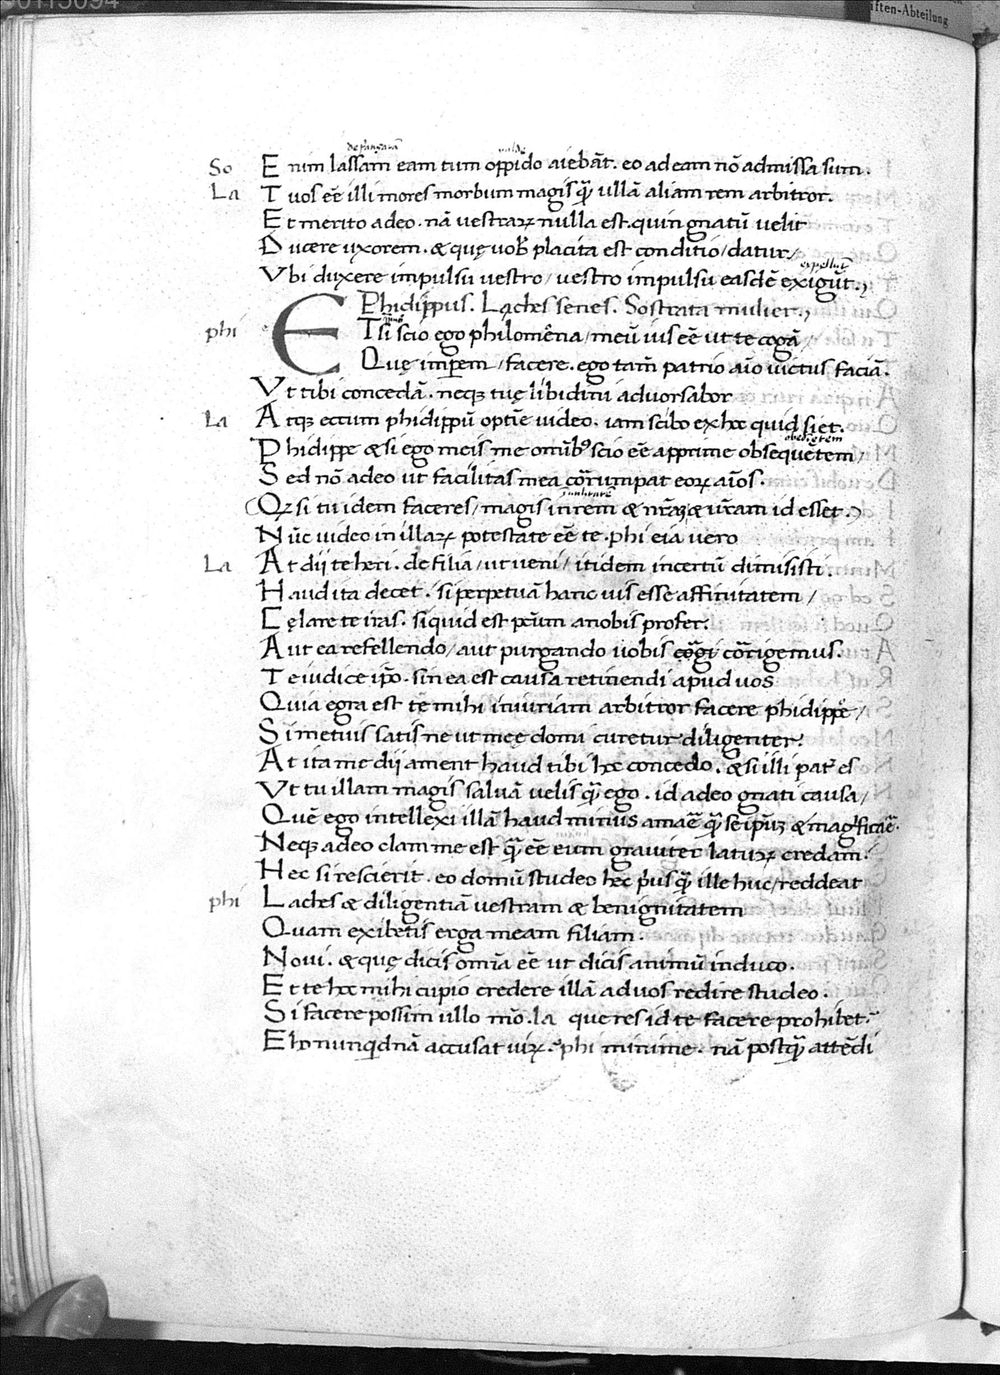 iften-Abteilung
So E nim lassam eam tum oppido aiebāt. eo ad eam nō admissa sum.
La T uos eē illi mores morbum magis q̄ ullā aliam rem arbitror.
E t merito adeo. nā vestraꝝ nulla est. quin gnatū uelit
D ucere uxorem. & quę uob̄ placita est conditio / datur /
expellūt
V bi duxere impulsu uestro / uestro impulsu easdē exigūt.
Phidippus. Laches senes. Sostrata mulier.
phi E Tsi scio ego philomēna / meū ius eē ut te cogā
Quę imperem / facere. ego tam̄ patrio aīo uictus faciā.
V t tibi concedā. neqꝫ tuę libidini aduorsabor
La A tqꝫ eccum phidippū optīe uideo. iam scibo ex hoc quid siet.
P hidippe & si ego meis me omībꝰ scio eē apprime obsequētem /
S ed nō adeo ut facilitas mea corrumpat eoꝝ aīos.
Qꝫ si tu idem faceres / magis in rem & nr̄am & ur̄am id esset.
N ūc uideo in illaꝝ potestate eē te. phi eia uero
La A t dii te heri. de filia / ut ueni / itidem incertū dimisisti
H aud ita decet. si perpetuā hanc uis esse affinitatem /
C ęlare te iras. si quid est pc̄tum a nobis profer.
A ut ea refellendo / aut purgando uobis corrigemus.
T e iudice ip̄o. sin ea est causa retinendi apud uos
Quia egra est tē mihi iniuriam arbitror facere phidippe /
S i metuis satis ne ut meę domi curetur diligenter.
A t ita me dii ament haud tibi hoc concedo. & si illi pat̄ es
V t tu illam magis saluā uelis q̄ ego. id adeo gnati causa /
Quē ego intellexi illā haud minus amaē q̄ seip̄um & magnificaē.
N eqꝫ adeo clam me est q̄ eē eum grauiter laturꝝ credam.
H ec si rescierit. eo domū studeo hec p̄us q̄ ille huc / reddeat
phi L aches & diligentiā vestram & benignitatem
Quam exibetis erga meam filiam.
N oui. & quę dicis omīa eē ut dicis animū induco.
E t te hoc mihi cupio credere illā ad uos redire studeo.
S i facere possim ullo mō. la que res id te facere prohibet.
E ho nunqd nā accusat uiꝝ. phi minime. nā postq̄ attēdi